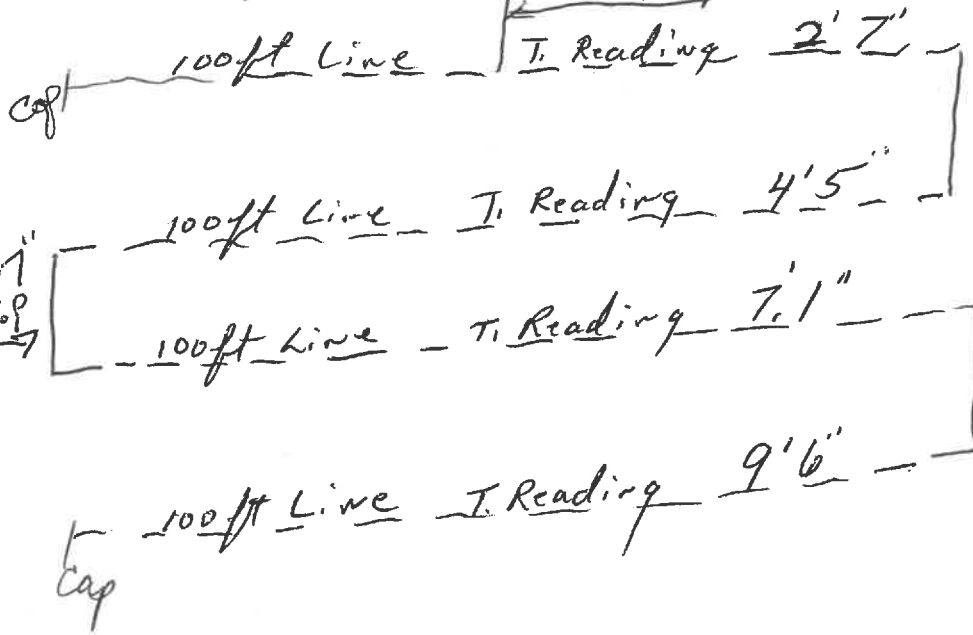 100ft Line T. Reading 2' 7"
Cap
100ft Line T. Reading 4'5"
100ft Line T. Reading 7.'1"
100ft Line T. Reading 9'6"
Cap